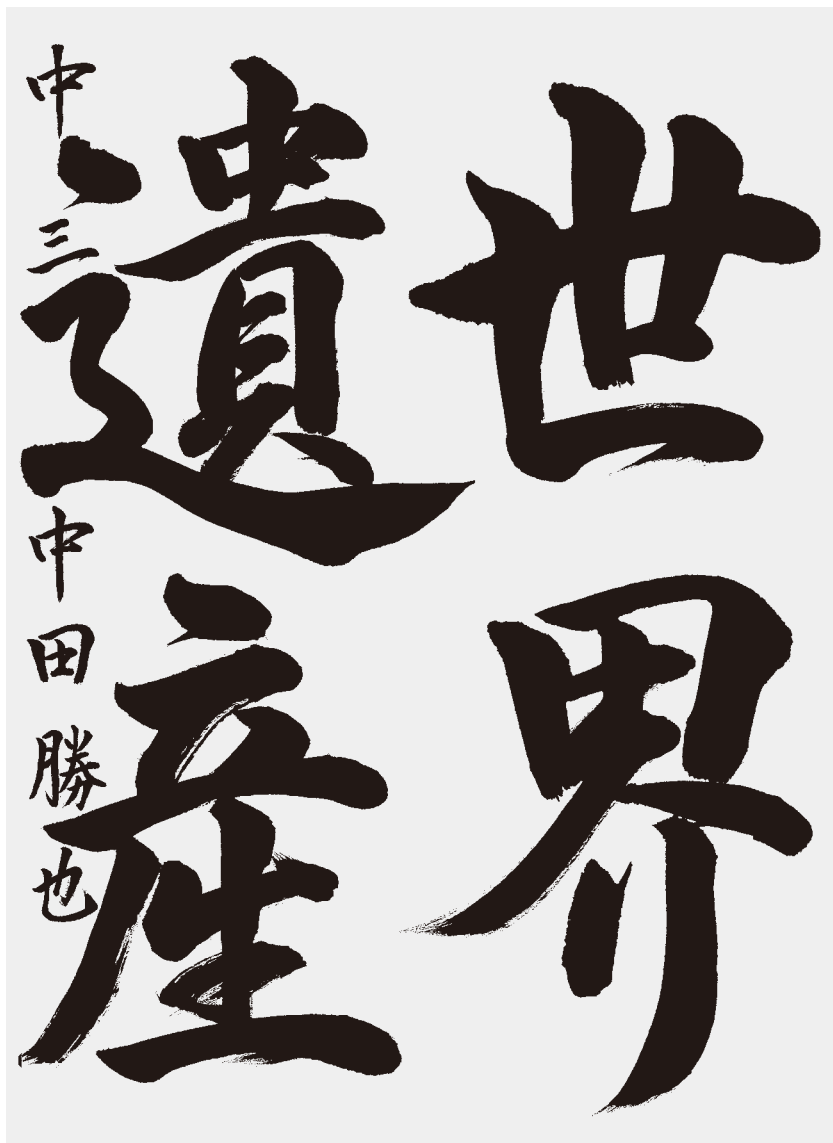 世界
遺産
中三 中田勝也